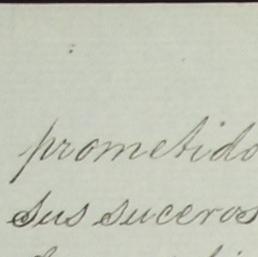 prometido
sus suceros